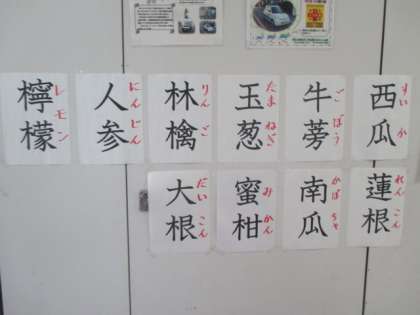 西瓜 すいか
牛蒡 ごぼう
玉葱 たまねぎ
林檎 りんご
人参 にんじん
檸檬 レモン
蓮根 れんこん
南瓜 かぼちゃ
蜜柑 みかん
大根 だいこん